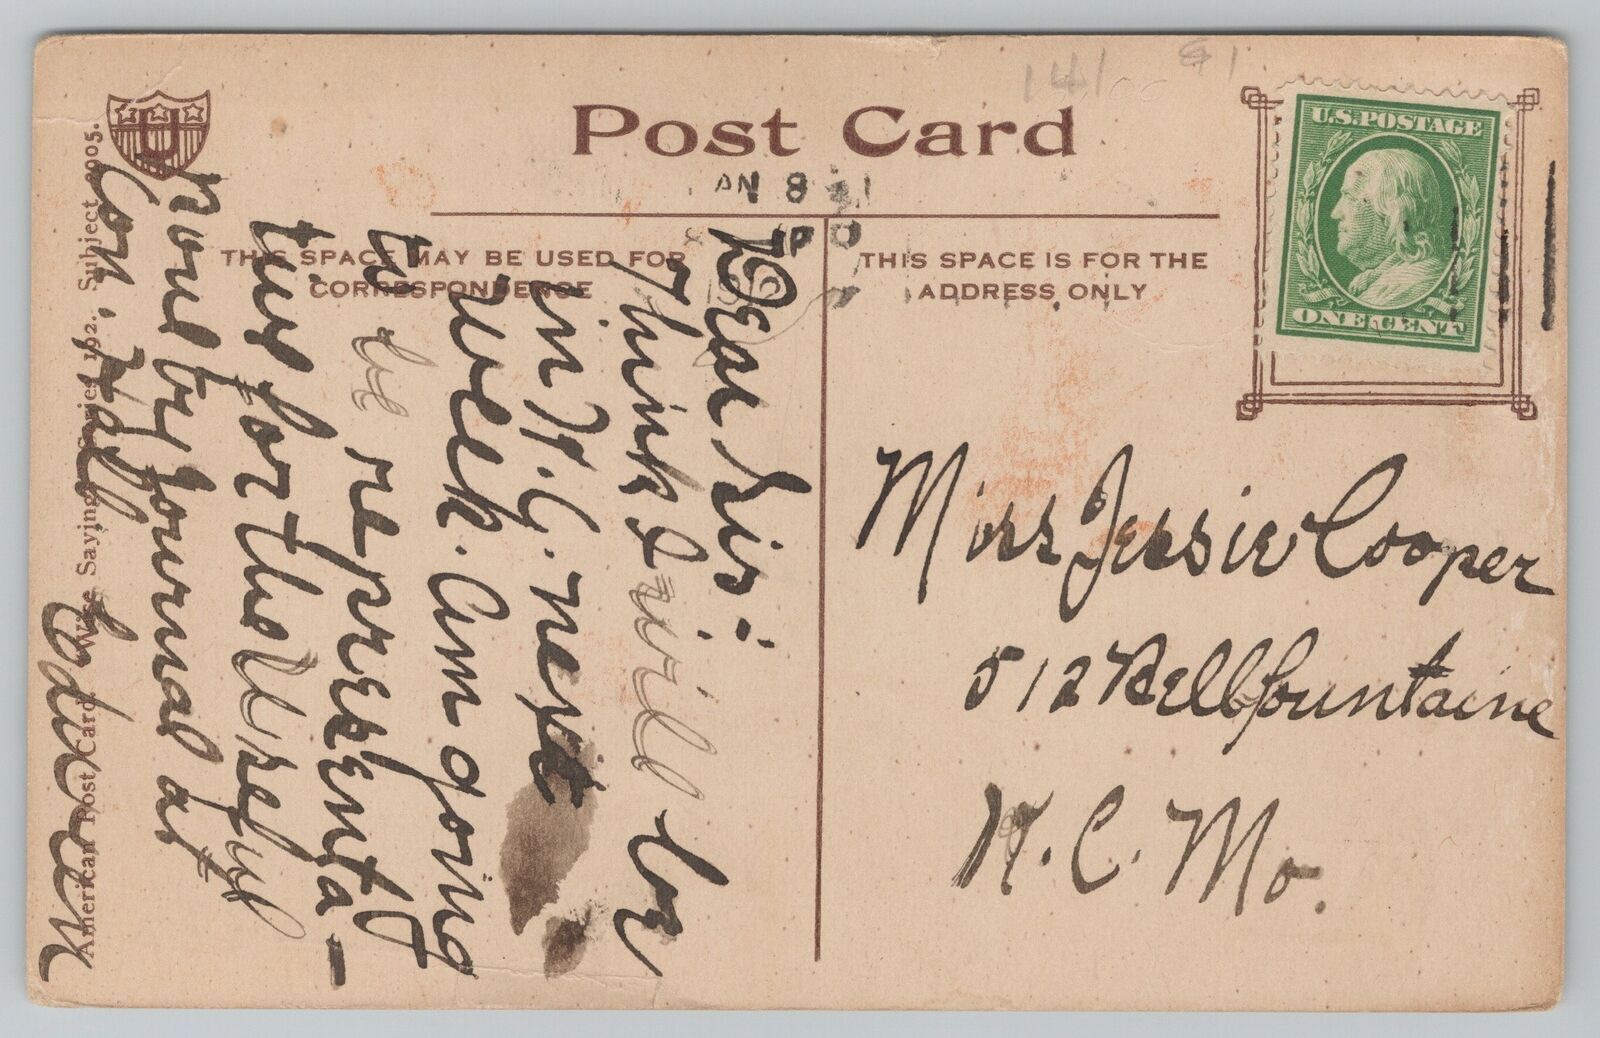 Post Card
THIS SPACE MAY BE USED FOR
CORRESPONDENCE
THIS SPACE IS FOR THE
ADDRESS ONLY
U.S. POSTAGE
ONE CENT
U
14/00
AN 8
Dear Sis:-
Think I will be
in K.C. next
week. Am going
to be representa-
tive for the
put by Journal at
Con. Hall
American Post Card. Wise Saying Series 192. Subject 2005.
Miss Jessie Cooper
512 Bellfountaine
K.C. Mo.